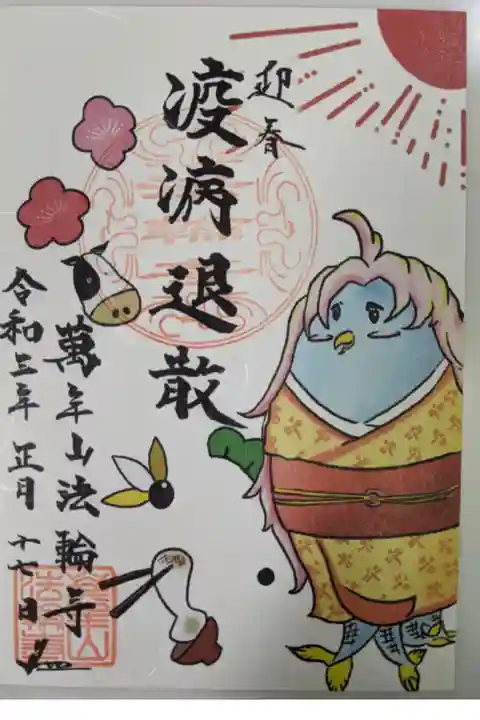 迎春
疫病退散
萬年山法輪寺
令和三年 正月 十七日